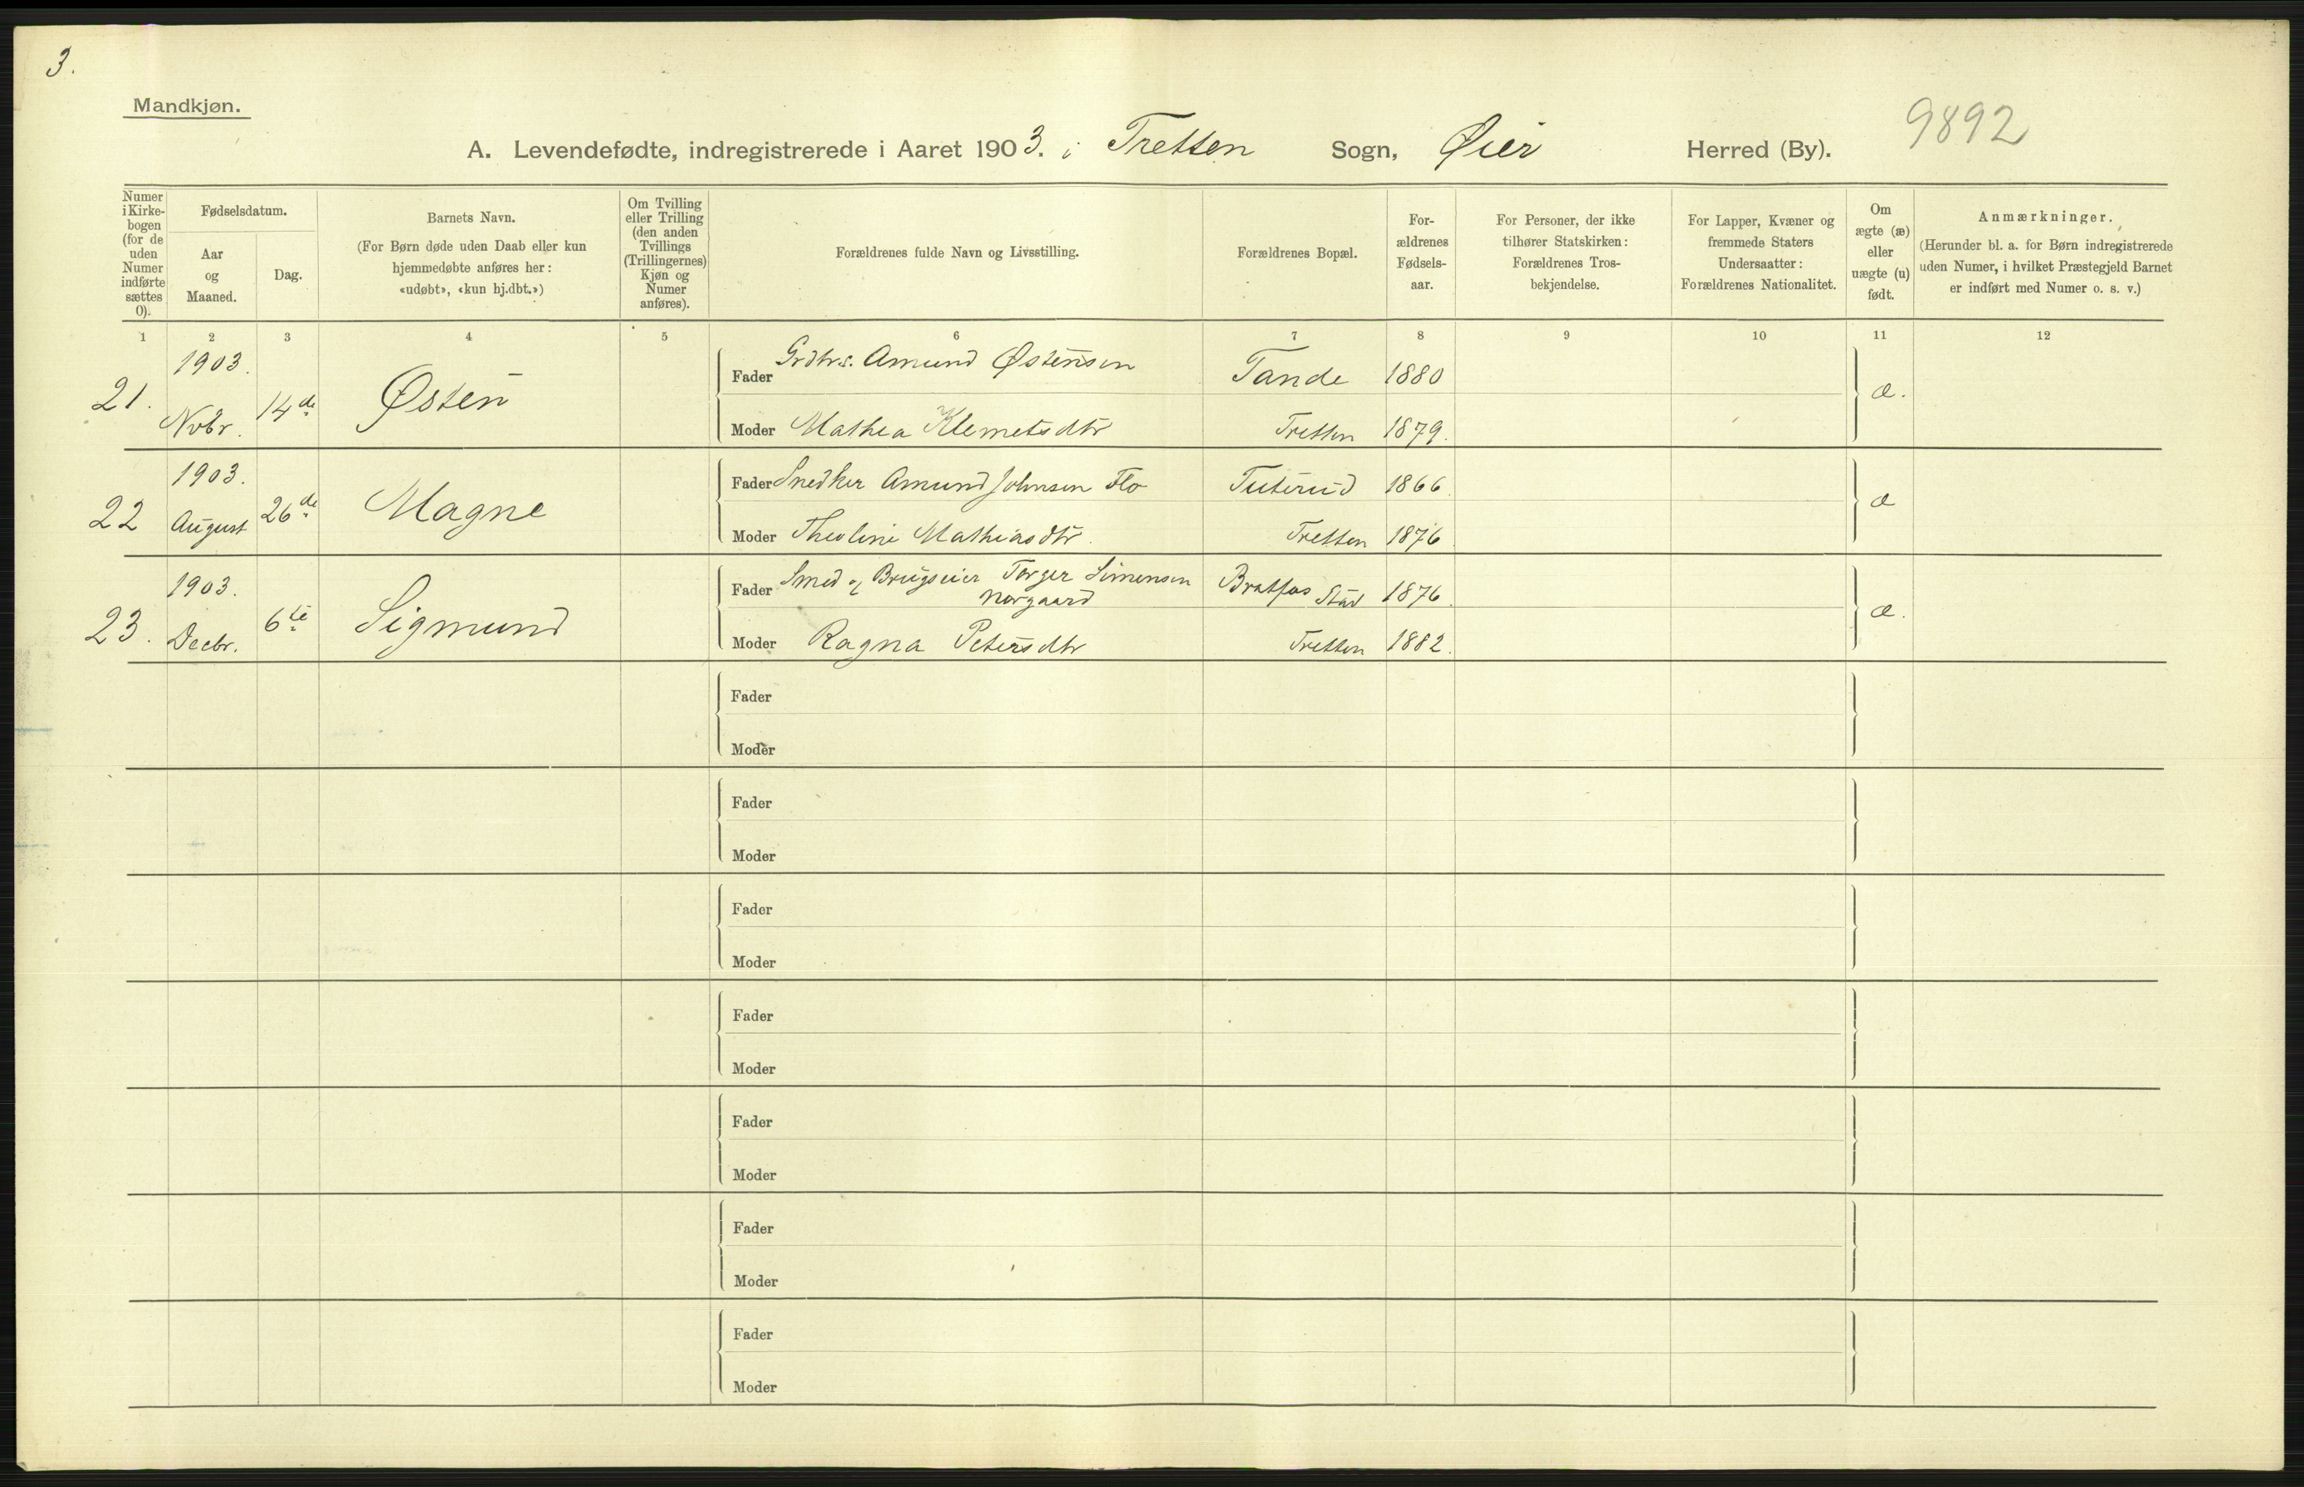 3.
Mandkjøn.
9892
A. Levendefødte, indregistrerede i Aaret 1903. i Tretten Sogn, Øier Herred (By).
Numer i Kirke-bogen (for de uden Numer indførte sættes 0).
Fødselsdatum.
Aar og Maaned.
Dag.
Barnets Navn.
(For Børn døde uden Daab eller kun
hjemmedøbte anføres her:
«udøbt», «kun hj.dbt.»)
Om Tvilling
eller Trilling
(den anden
Tvillings
(Trillingernes)
Kjøn og
Numer
anføres).
Forældrenes fulde Navn og Livsstilling.
Forældrenes Bopæl.
For-
ældrenes
Fødsels-
aar.
For Personer, der ikke
tilhører Statskirken:
Forældrenes Tros-
bekjendelse.
For Lapper, Kvæner og
fremmede Staters
Undersaatter:
Forældrenes Nationalitet.
Om
ægte (æ)
eller
uægte (u)
født.
Anmærkninger.
(Herunder bl. a. for Børn indregistrerede
uden Numer, i hvilket Præstegjeld Barnet
er indført med Numer o. s. v.)
1 2 3 4 5 6 7 8 9 10 11 12
21. 1903. Novbr. 14de Østen
Fader Grdbrs. Amund Østensen Tande 1880 æ.
Moder Mathea Klemetsdtr Tretten 1879.
22 1903. August 26de Magne
Fader Snedker Amund Johnsen Flo Tuterud 1866. æ
Moder Theoline Mathiasdtr. Tretten 1876.
23. 1903. Decbr. 6te Sigmund
Fader Smed og Brugseier Torger Simensen Bratfos Stav 1876. æ.
Norgaard
Moder Ragna Petersdtr Tretten 1882.
Fader
Moder
Fader
Moder
Fader
Moder
Fader
Moder
Fader
Moder
Fader
Moder
Fader
Moder